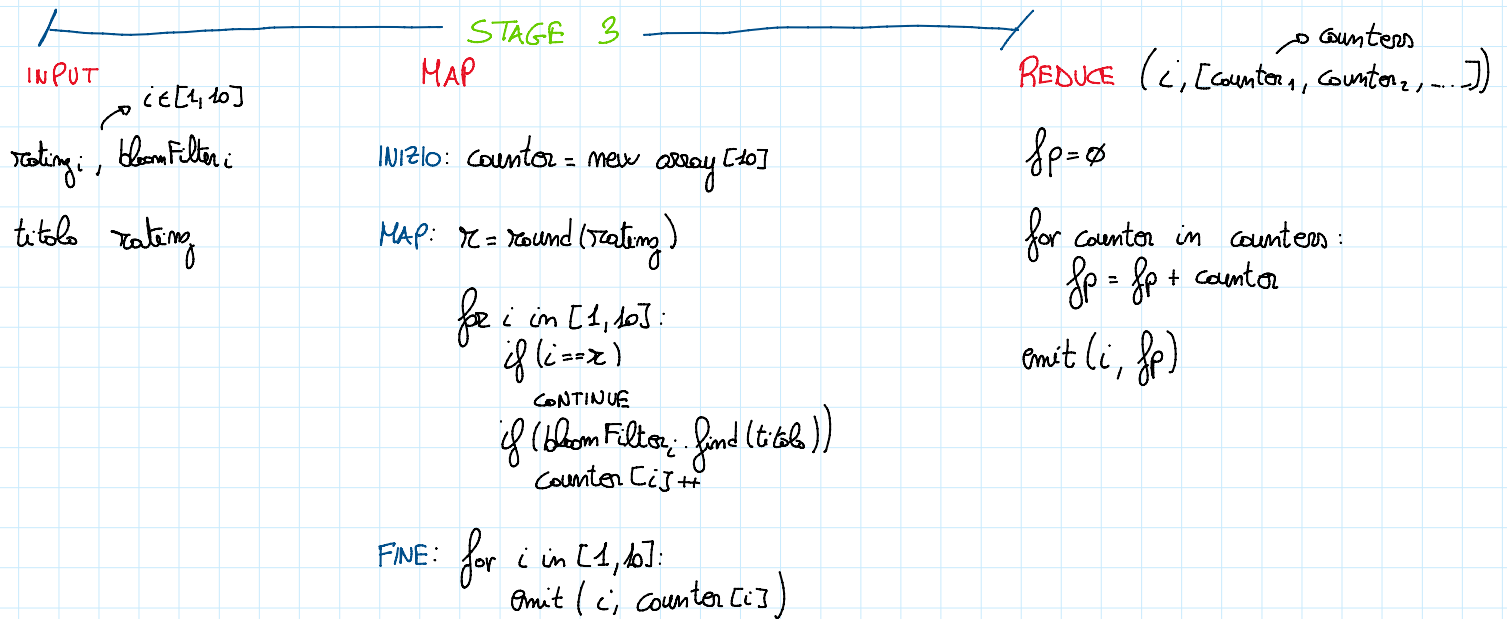 STAGE 3
INPUT
i∈[1,10]
rating i, bloomFilter i
titolo rating
MAP
INIZIO: counter = new array[10]
MAP: r = round(rating)
for i in [1,10]:
if (i==r)
CONTINUE
if (bloomFilter i.find(titolo))
counter[i]++
FINE: for i in [1,10]:
emit(i, counter[i])
counters
REDUCE (i, [counter1, counter2, ...])
fp=∅
for counter in counters:
fp = fp + counter
emit(i, fp)